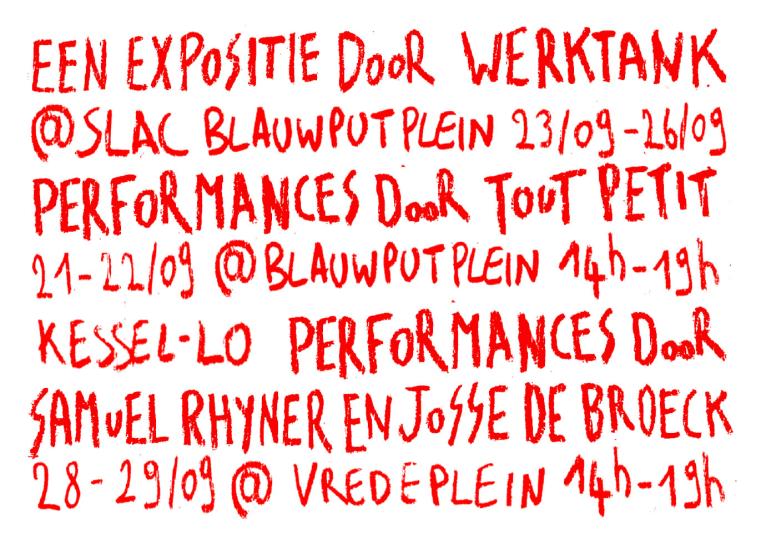 EEN EXPOSITIE DooR WERKTANK
@SLAC BLAUWPUTPLEIN 23/09-26/09
PERFORMANCES DooR TOUT PETIT
21-22/09 @BLAUWPUTPLEIN 14h-19h
KESSEL-LO PERFORMANCES DooR
SAMUEL RHYNER EN JoSSE DE BROECK
28-29/09 @ VREDEPLEIN 14h-19h